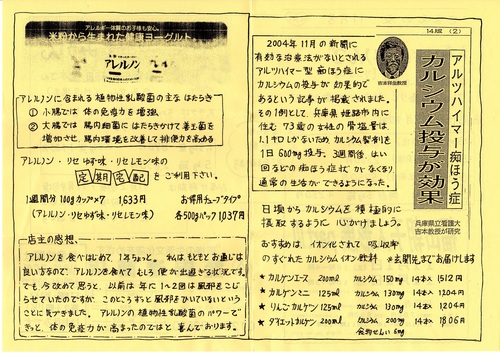 アレルギー体質のお子様も安心。
米粉から生まれた健康ヨーグルト。
アレルノン
アレルノンに含まれる植物性乳酸菌の主なはたらき
① 小腸では 体の免疫力を増強
② 大腸では 腸内細菌にはたらきかけて善玉菌を
増加させ、腸内環境を改善して排便力を高める
アレルノン・リセゆず味・リセレモン味の
定期宅配 をご利用下さい。
1週間分 100gカップ×7 1,633円
(アレルノン・リセゆず味・リセレモン味)
お得用チューブタイプ
各500gパック 1,037円
店主の感想、
アレルノンを食べはじめて 1年ちょっと。私はもともとお通じは
良い方なので、アレルノンを食べてもらう便が出過ぎる状況です。
でも今改めて思うと、以前は年に1~2回は風邪をこじ
らせていたのですが、このところずっと風邪をひいていないという
ことに気づきました。アレルノンの植物性乳酸菌のパワーで
きっと、体の免疫力が高まったのではと 喜んでおります。
14版 (2)
2004年11月の新聞に
有効な治療法がないとされる
アルツハイマー型 痴ほう症に
カルシウムの投与が効果的で
あるという記事が掲載されました。
その1例として、兵庫県姫路市内に
住む 73歳の女性の骨塩量は
1.1としかないため カルシウム製剤を
1日600mg投与、3週間後、はい
回などの痴ほう症状がなくなり
通常の生活ができるようになった。
吉本祥生教授
アルツハイマー痴ほう症
カルシウム投与が効果
兵庫県立看護大
吉本教授が研究
日頃から カルシウムを積極的に
摂取するように 心がけましょう。
おすすめは、イオン化されて 吸収率
のすぐれたカルシウムイオン飲料 ※玄関先までお届けします
★ カルゲンエース 200ml カルシウム 150mg 14本入 1512円
★ カルゲンミニ 125ml カルシウム 130mg 14本入 1204円
★ りんごカルゲン 125ml カルシウム 130mg 14本入 1204円
★ ダイエットカルゲン 200ml カルシウム 200mg 14本入 1806円
食物せんい 6mg